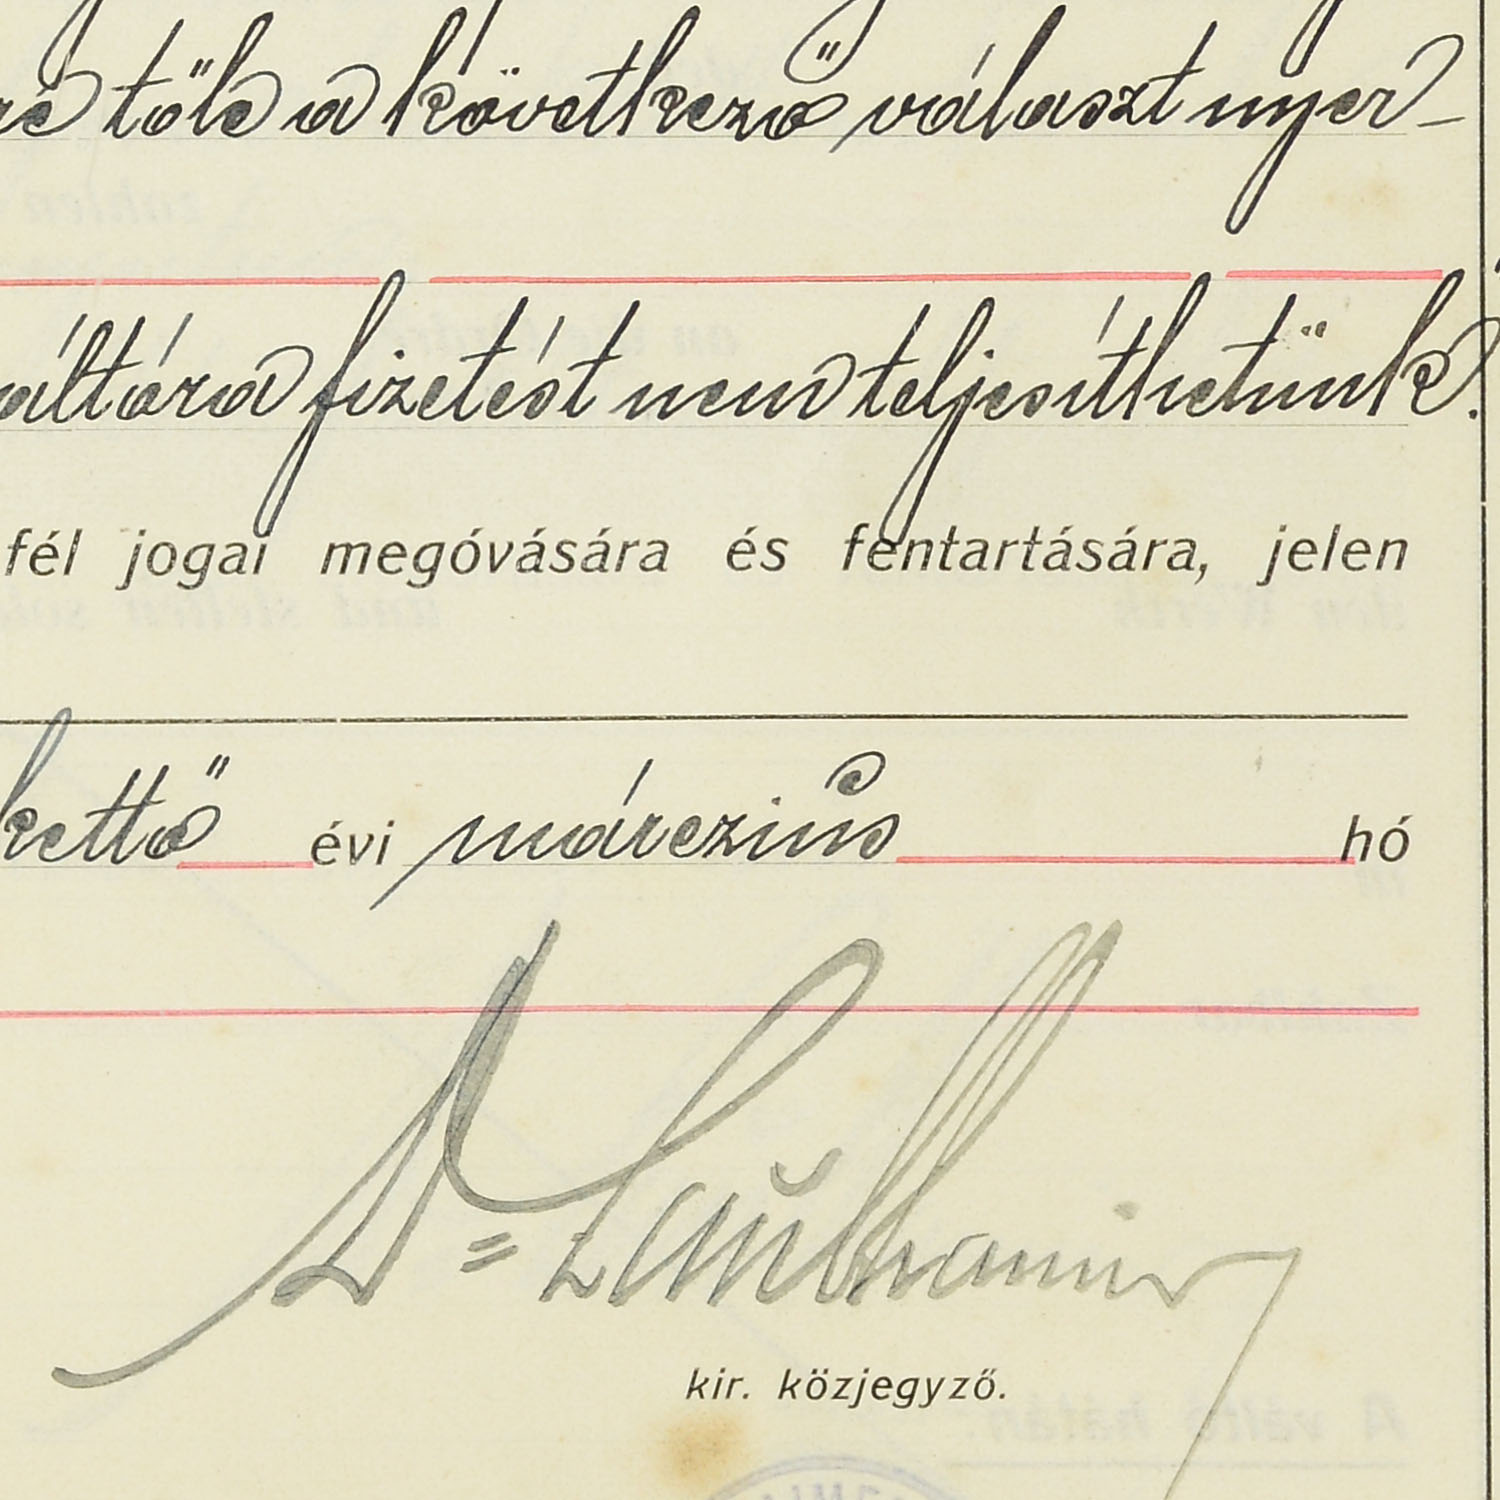 tőle a következő választ nyer-
fizetést nem teljesíthetünk.
fél jogai megóvására és fentartására, jelen
kettő évi márczius hó
Dr
kir. közjegyző.